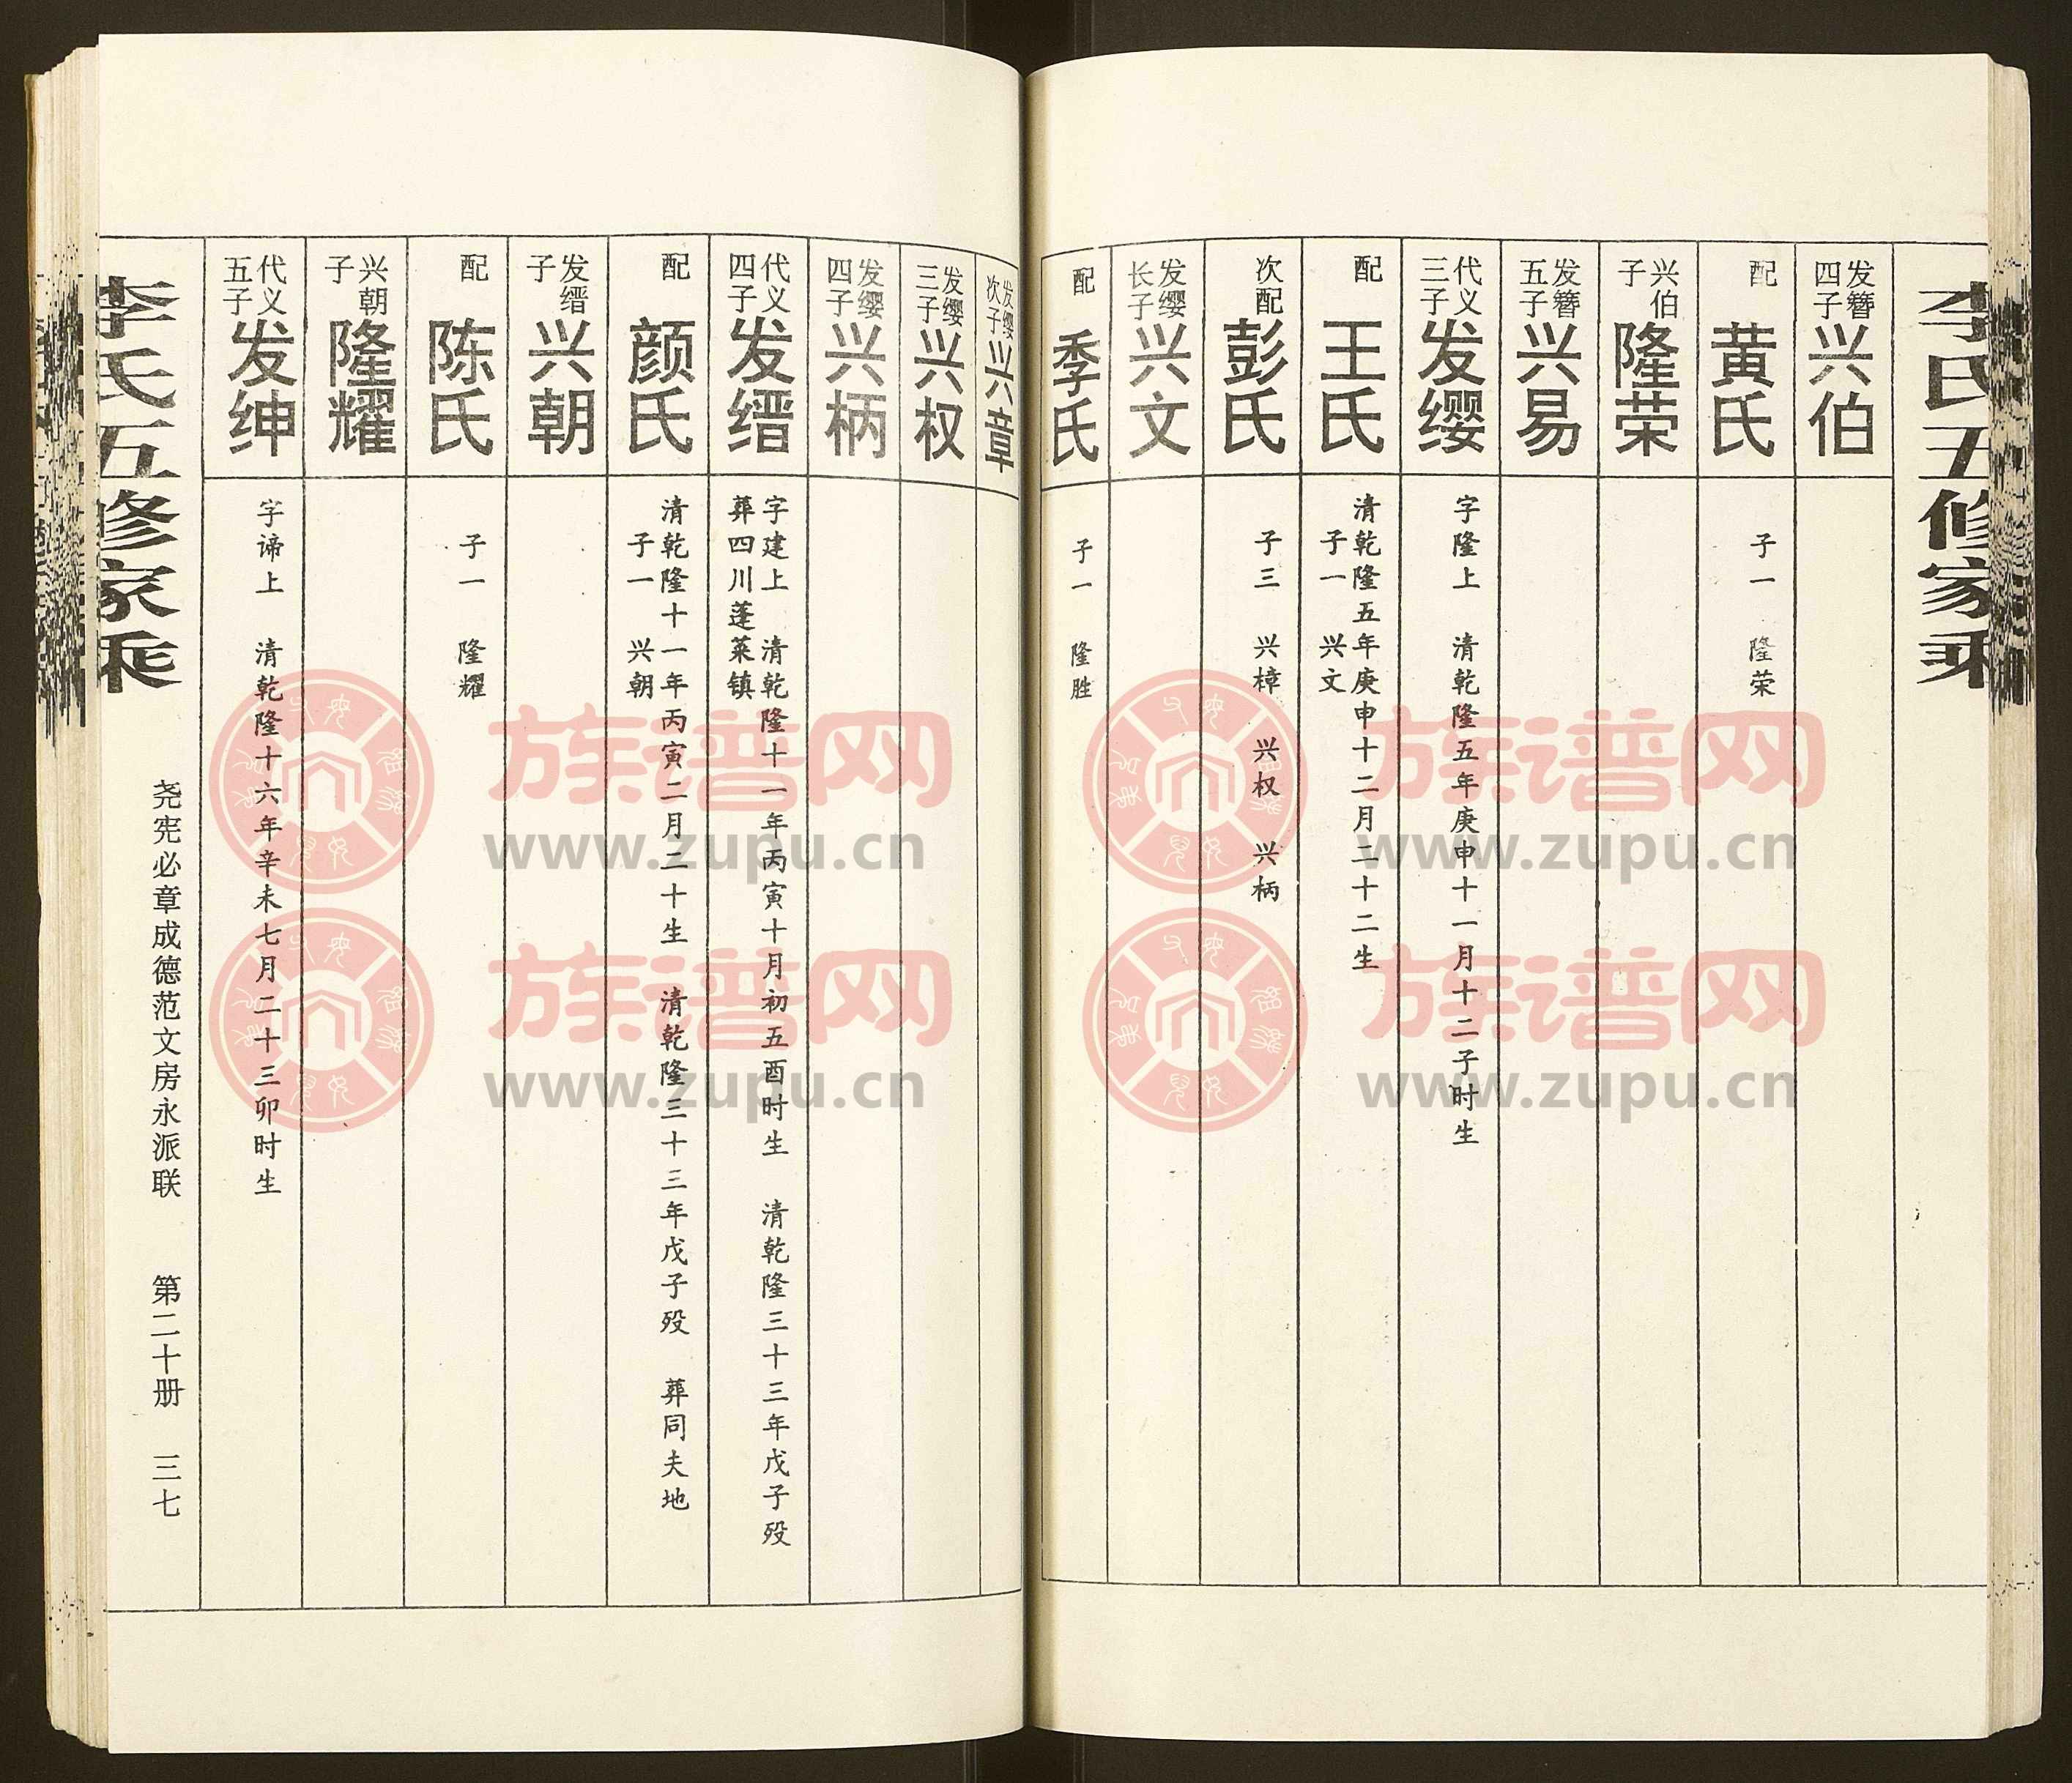 李氏五修家乘
发簪四子 兴伯
配 黄氏 子一 隆荣
兴伯子 隆荣
发簪五子 兴易
代义三子 发缨 字隆上 清乾隆五年庚申十一月十二子时生
配 王氏 清乾隆五年庚申十二月二十二生
子一 兴文
次配 彭氏 子三 兴樟 兴权 兴柄
发缨长子 兴文
配 季氏 子一 隆胜
发缨次子 兴章
发缨三子 兴权
发缨四子 兴柄
代义四子 发缙 字建上 清乾隆十一年丙寅十月初五酉时生 清乾隆三十三年戊子殁
葬四川蓬莱镇
配 颜氏 清乾隆十一年丙寅二月二十生 清乾隆三十三年戊子殁 葬同夫地
子一 兴朝
发缙子 兴朝
配 陈氏 子一 隆耀
兴朝子 隆耀
代义五子 发绅 字谛上 清乾隆十六年辛未七月二十三卯时生
李氏五修家乘
尧宪必章成德范文房永派联 第二十册 三七
族谱网
www.zupu.cn
族谱网
www.zupu.cn
族谱网
www.zupu.cn
族谱网
www.zupu.cn